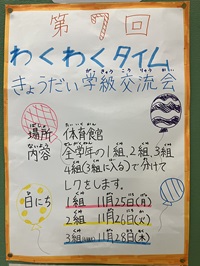 第7回
わくわくタイム
きょうだい学級交流会
場所 体育館
内容 全学年の1組、2組、3組
4組(3組に入る)で分けて
レクをします。
日にち
1組 11月25日(月)
2組 11月26日(火)
3組 11月28日(木)